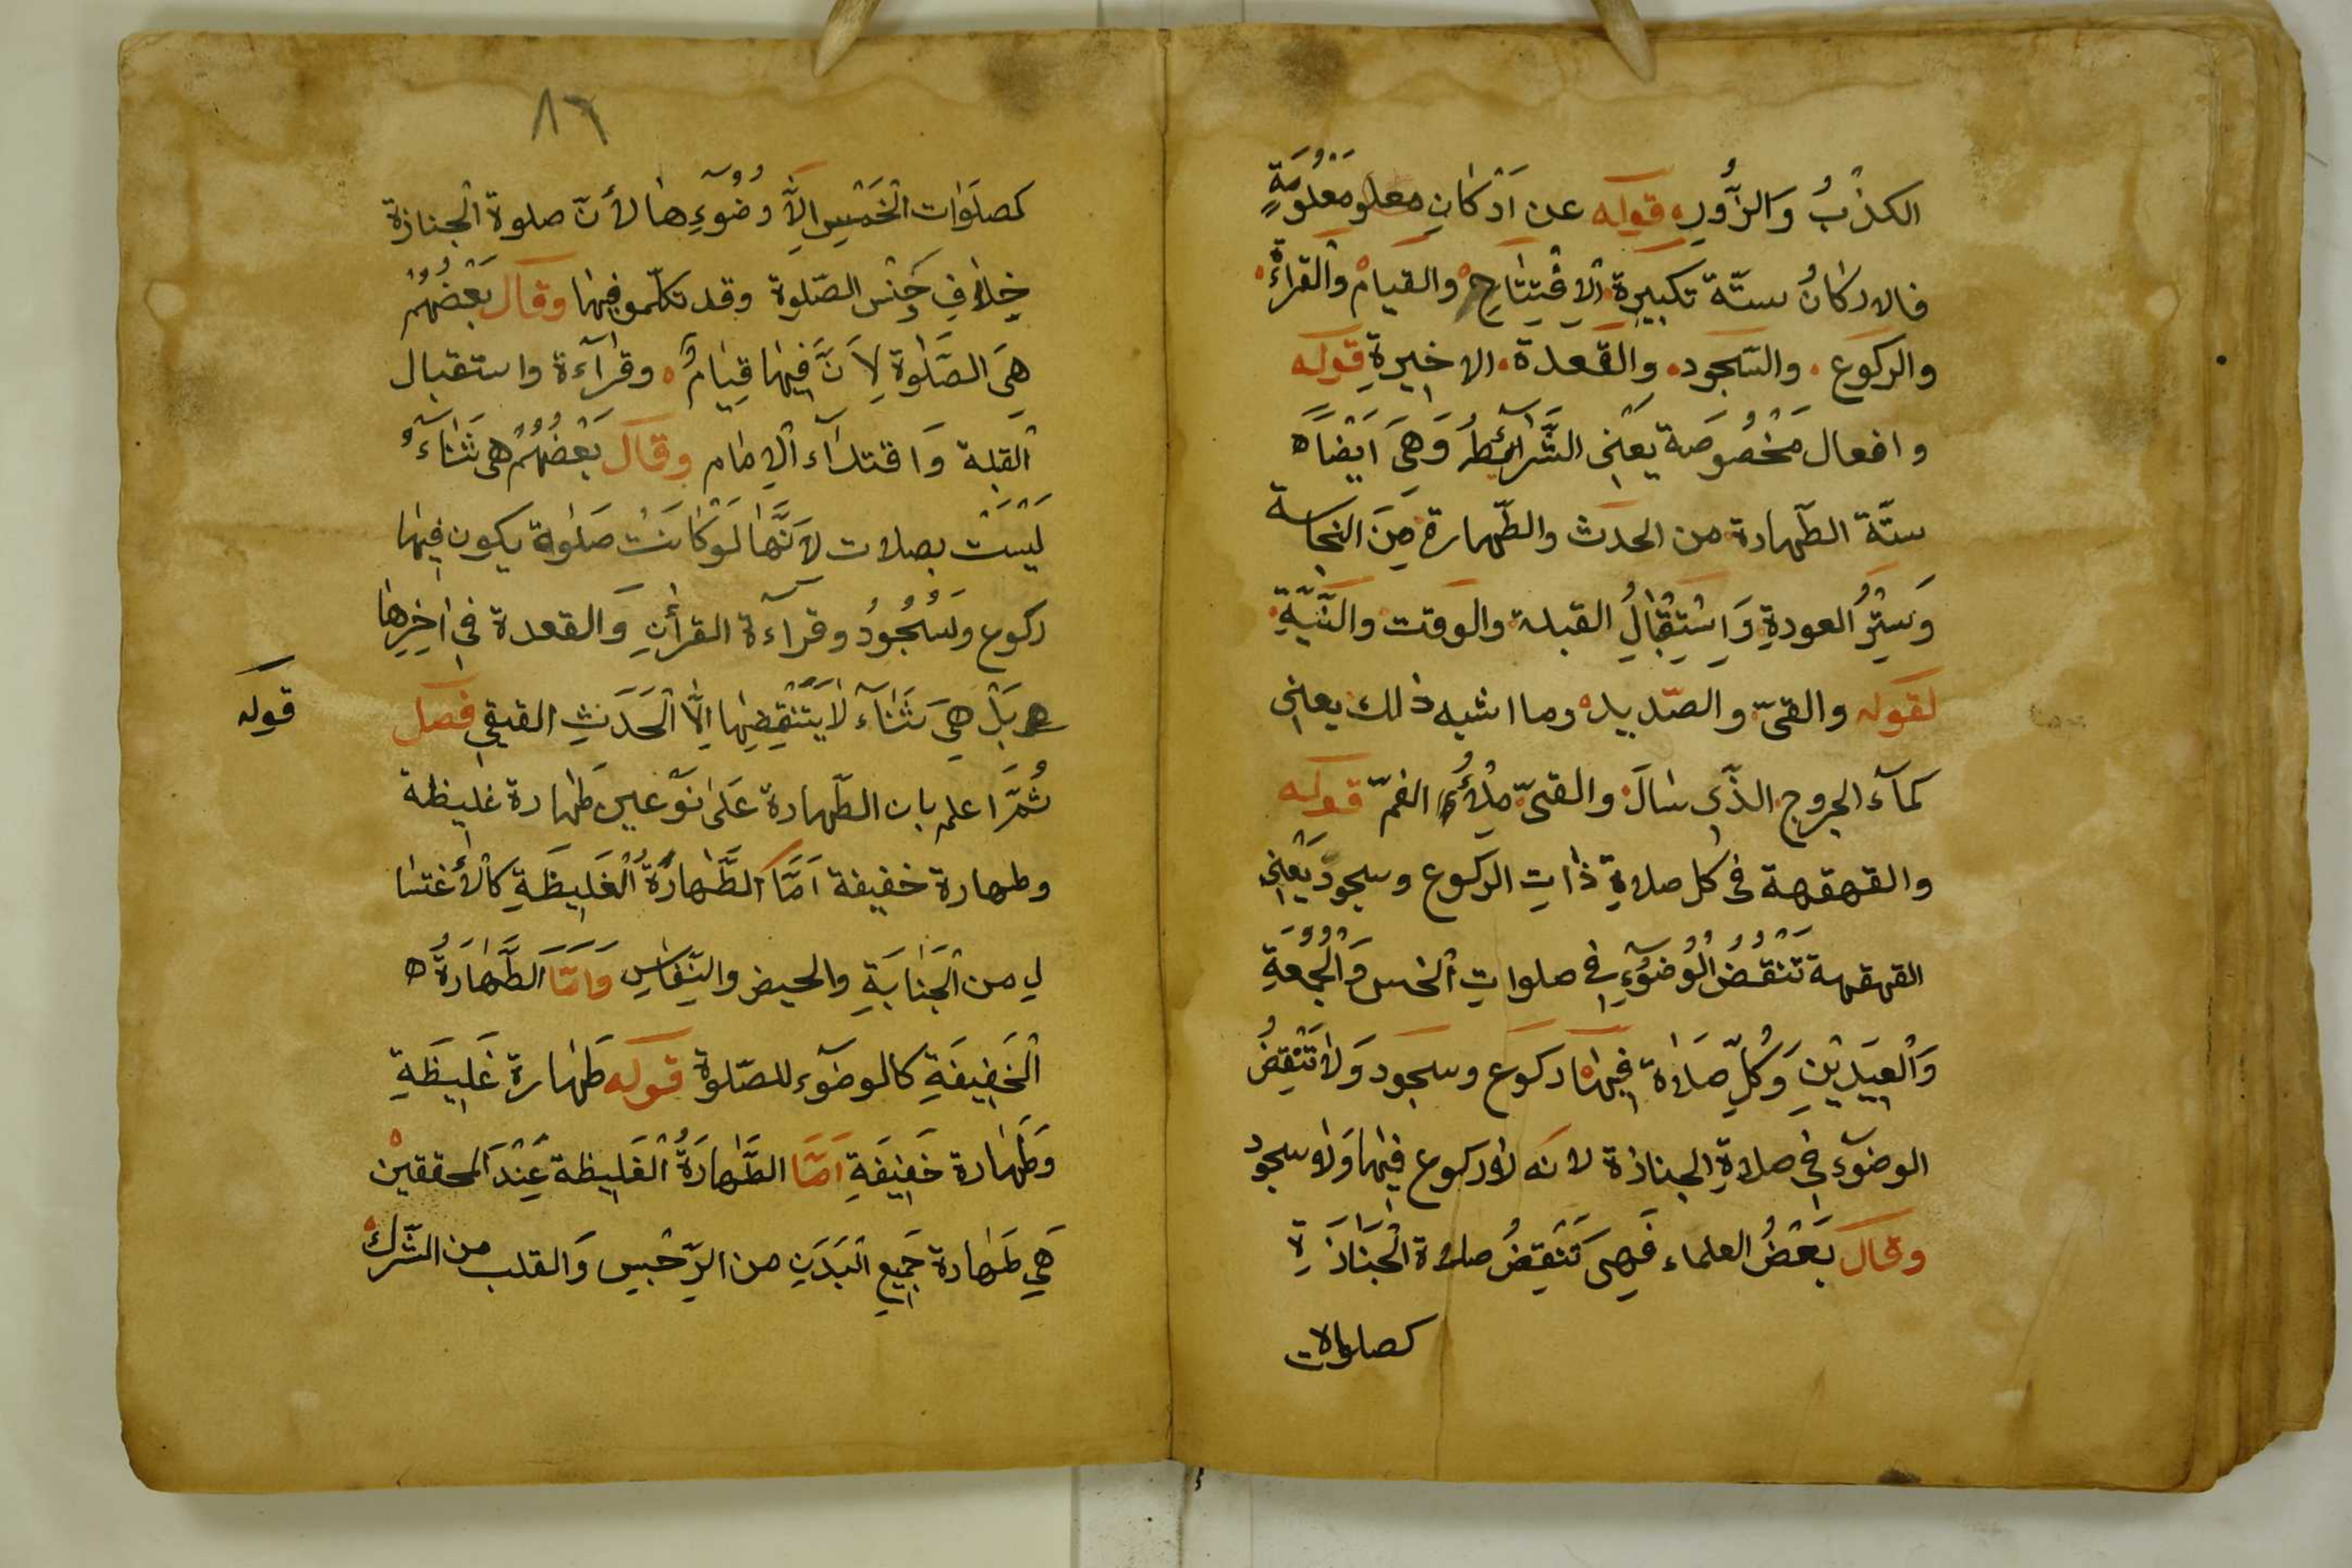 الكذْبُ وَالزُّورِ قوله عن اَرْكانٍ معلو مَعْلُومَةٍ
فالاركانُ ستّة تكبيرة الاِفْتِتَاحِ والقيام والقراءْة
والركوع والسّجود والقعدة الاخيرةِ قوله
وافعال مَخْصُوصَة يَعْنِى الشَّرآئِطُ وَهِىَ اَيْضاً ه
ستّة الطّهارة من الحدَث والطّهارة مِنَ النجاسة
وَسَتْرُ العورةِ وَاسْتِقْبَالِ القبلة والوَقت والنِّيَّةِ
لقوله والقىّ والصّديد وما اشبه ذلك يعنِى
كمآء الجروح الذّى سَالَ والقىّ مِلْأُ الفمّ قوله
والقهقهة فى كل صلاةٍ ذاتِ الركوع وسجود يَعْنِى
القهقهة تَنْقُضُ الْوُضُوْءِ فِى صلواتِ الْخمس وَالْجُمُعَةِ
وَالْعِيدَيْنِ وَكُلِّ صَلاة فِيهَا ركوع وسجود وَلا تَنْقِضُ
الوضوٓء فِى صلاةِ الجنازة لانه لاركوع فِيها وَلا سجود
وقال بَعْضُ العلماء فَهِى تَنْقِضُ صلاة الْجَنَازَةِ
كصلوات
٨٦
كصلَوٰات الْخَمْسِ اِلاَّ وُضُوٓءِها لأنّ صلوة الْجنازة
خِلافِ جنْس الصّلوة وقد تكلّمو فِيها وقال بَعْضُهُمْ
هِىَ الصَّلٰوة لِاَنَّ فِيهَا قِيَامٌ وقرآءة واستقبال
القبلة وَاقتدآء الاِمَام وقال بَعْضُهُمْ هى ثَنَآءٌ
لَيْسَتْ بصلات لاَنَّهَا لَوْكَانَتْ صَلٰوة يكون فِيها
ركوع وسُجُودُ وقرآءة القرأنِ وَالقعدة فِى اٰخِرِها
بَلْ هِىَ ثَنَآء لاَ يَتْنَقِضِها اِلاَّ الْحَدَثِ القيقِى فصل
قوله
ثُمَّ اعلم بان الطّهارة عَلى نَوْعين طَهارة غليظة
وطهارة خفيفة اَمَّا الطَّهَارَةُ الْغَلِيظَةِ كالأغتسا
لِ من الْجَنَابَةِ والحيض والنِّفَاسِ وَاَمَّا الطَّهَارَةُ ه
الْخَفِيفَةِ كالوضوٓء للصّلوة قوله طَهارة غَلِيظَةِ
وَطَهَارة خَفِيفَةِ اَمَّا الطَّهَارَةُ الْغَلِيظة عِنْدَ المحققين
هِىَ طَهارة جَمِيعِ الْبَدَنِ من الرّجسِ وَالقلب من الشّرك